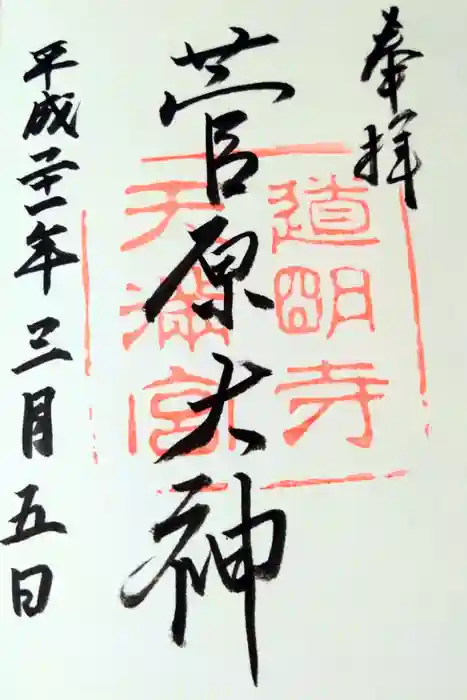 奉拝
道明寺
天満宮
菅原大神
平成二十一年三月五日